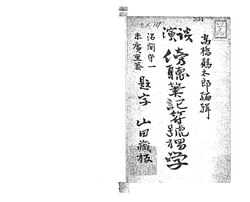 高橋鶴太郎編輯
演談
傍聴筆記符號獨学
沼間守一
末廣重恭
題字
山田藏板